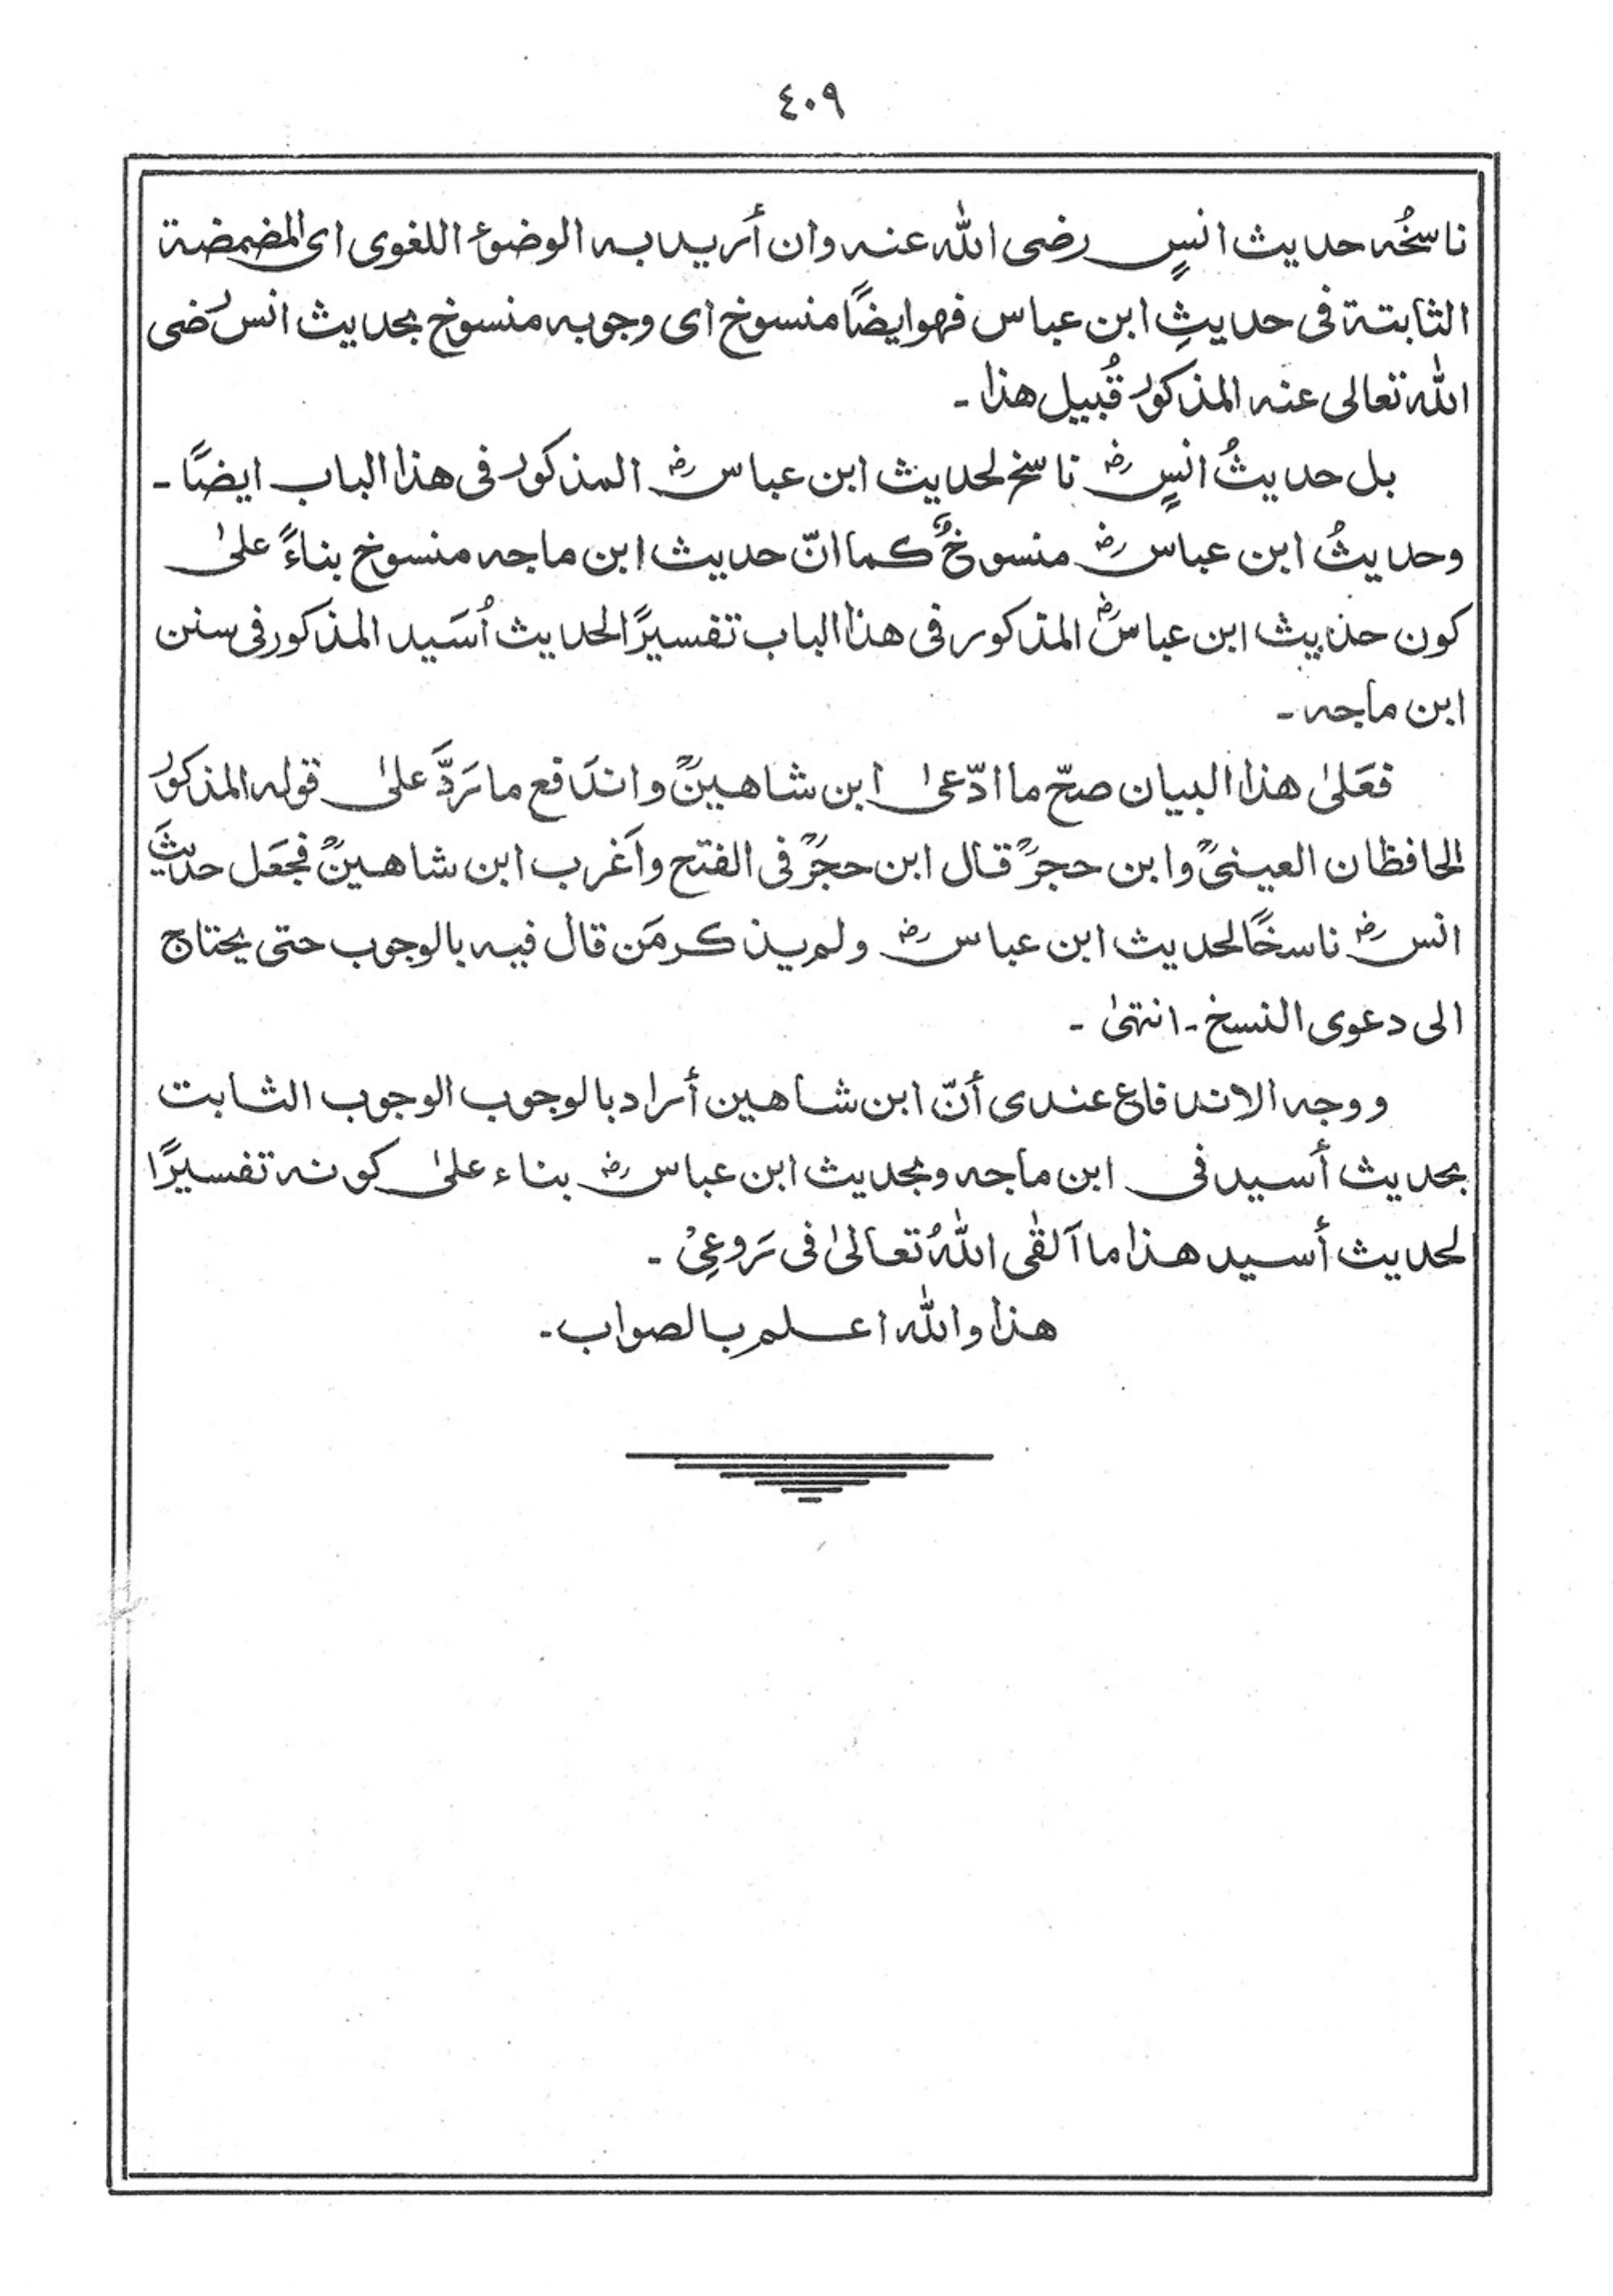 ٤٠٩
ناسخُه حديث انسٍ رضى الله عنه وان أريد به الوضوء اللغوى اى المضمضة
الثابتة فى حديثِ ابن عباس فهو ايضًا منسوخ اى وجوبه منسوخ بحديث انس رضى
الله تعالى عنه المذكور قُبيل هذا ـ
بل حديثُ انسٍ ؓ ناسخ لحديث ابن عباس ؓ المذكور فى هذا الباب ايضًا ـ
وحديثُ ابن عباس ؓ منسوخٌ كما انّ حديث ابن ماجه منسوخ بناءً علىٰ
كون حديث ابن عباس ؓ المذكور فى هذا الباب تفسيرًا لحديث اُسَيد المذكور فى سنن
ابن ماجه ـ
فعَلىٰ هذا البيان صحّ ما ادّعىٰ ابن شاهين ؒ واندَفع ما رَدَّ علىٰ قوله المذكور
الحافظان العينى ؒ وابن حجر ؒ قال ابن حجر ؒ فى الفتح واَغرب ابن شاهين ؒ فجَعَل حديثَ
انس ؓ ناسخًا لحديث ابن عباس ؓ ولم يذكر مَن قال فيه بالوجوب حتى يحتاج
الى دعوى النسخ ـ انتهىٰ ـ
ووجه الاندفاع عندى أنّ ابن شاهين أراد بالوجوب الوجوب الثابت
بحديث أسيد فى ابن ماجه وبحديث ابن عباس ؓ بناء علىٰ كونه تفسيرًا
لحديث أسيد هذا ما اَلقٰى اللهُ تعالىٰ فى رَوعِىْ ـ
هذا والله اعلم بالصواب ـ